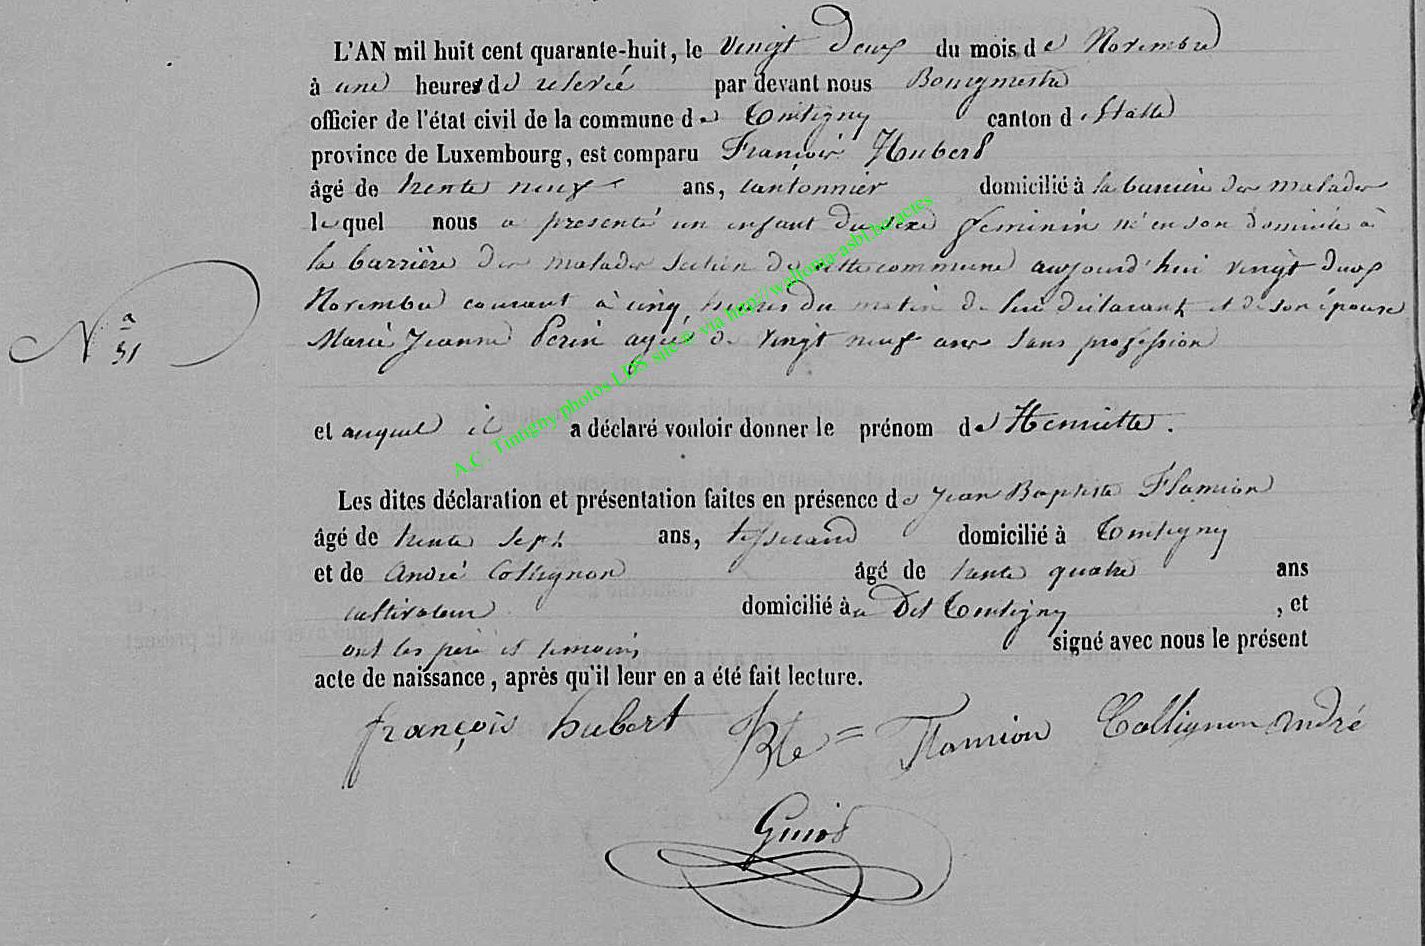 L'AN mil huit cent quarante-huit, le vingt Deux du mois de Novembre
à une heures de relevée par devant nous Bourgmestre
officier de l'état civil de la commune de Tintigny canton d'Etalle
province de Luxembourg, est comparu François Hubert
âgé de trente neuf ans, cantonnier domicilié à la barrière des malades
lequel nous a presenté un enfant du sexe feminin né en son domicile à
la barrière des malades Section de cette commune aujourd'hui vingt deux
Novembre courant à cinq heures du matin de lui déclarant et de son épouse
N° 51
Marie Jeanne Perin agée de vingt neuf ans Sans profession
et auquel il a déclaré vouloir donner le prénom de Henriette.
Les dites déclaration et présentation faites en présence de Jean Baptiste Flamion
âgé de trente Sept ans, tisserand domicilié à Tintigny
et de André Collignon âgé de trente quatre ans
cultivateur domicilié à Dit Tintigny, et
ont les père et temoins signé avec nous le présent
acte de naissance, après qu'il leur en a été fait lecture.
françois hubert Bte = Flamion Collignon André
A.C. Tintigny photos LDS site © via http://wallonia-asbl.be/actes